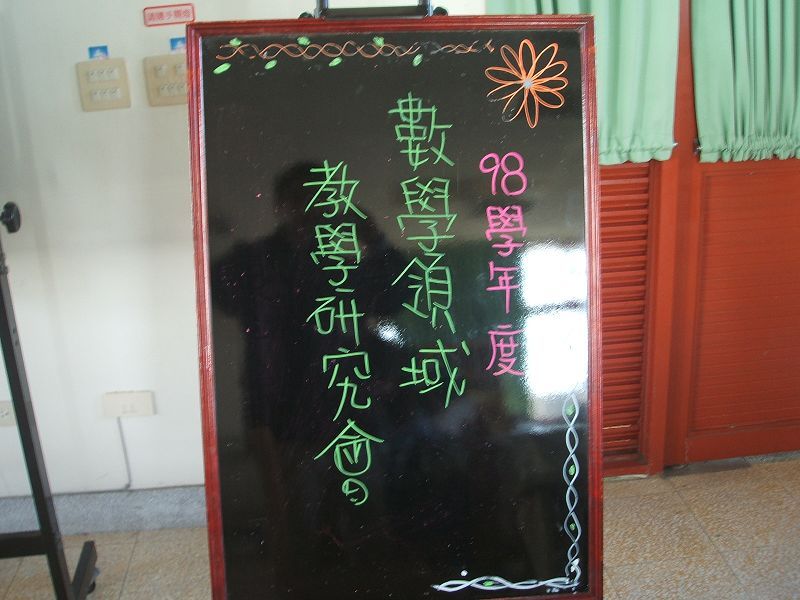 98學年度
數學領域
教學研究會